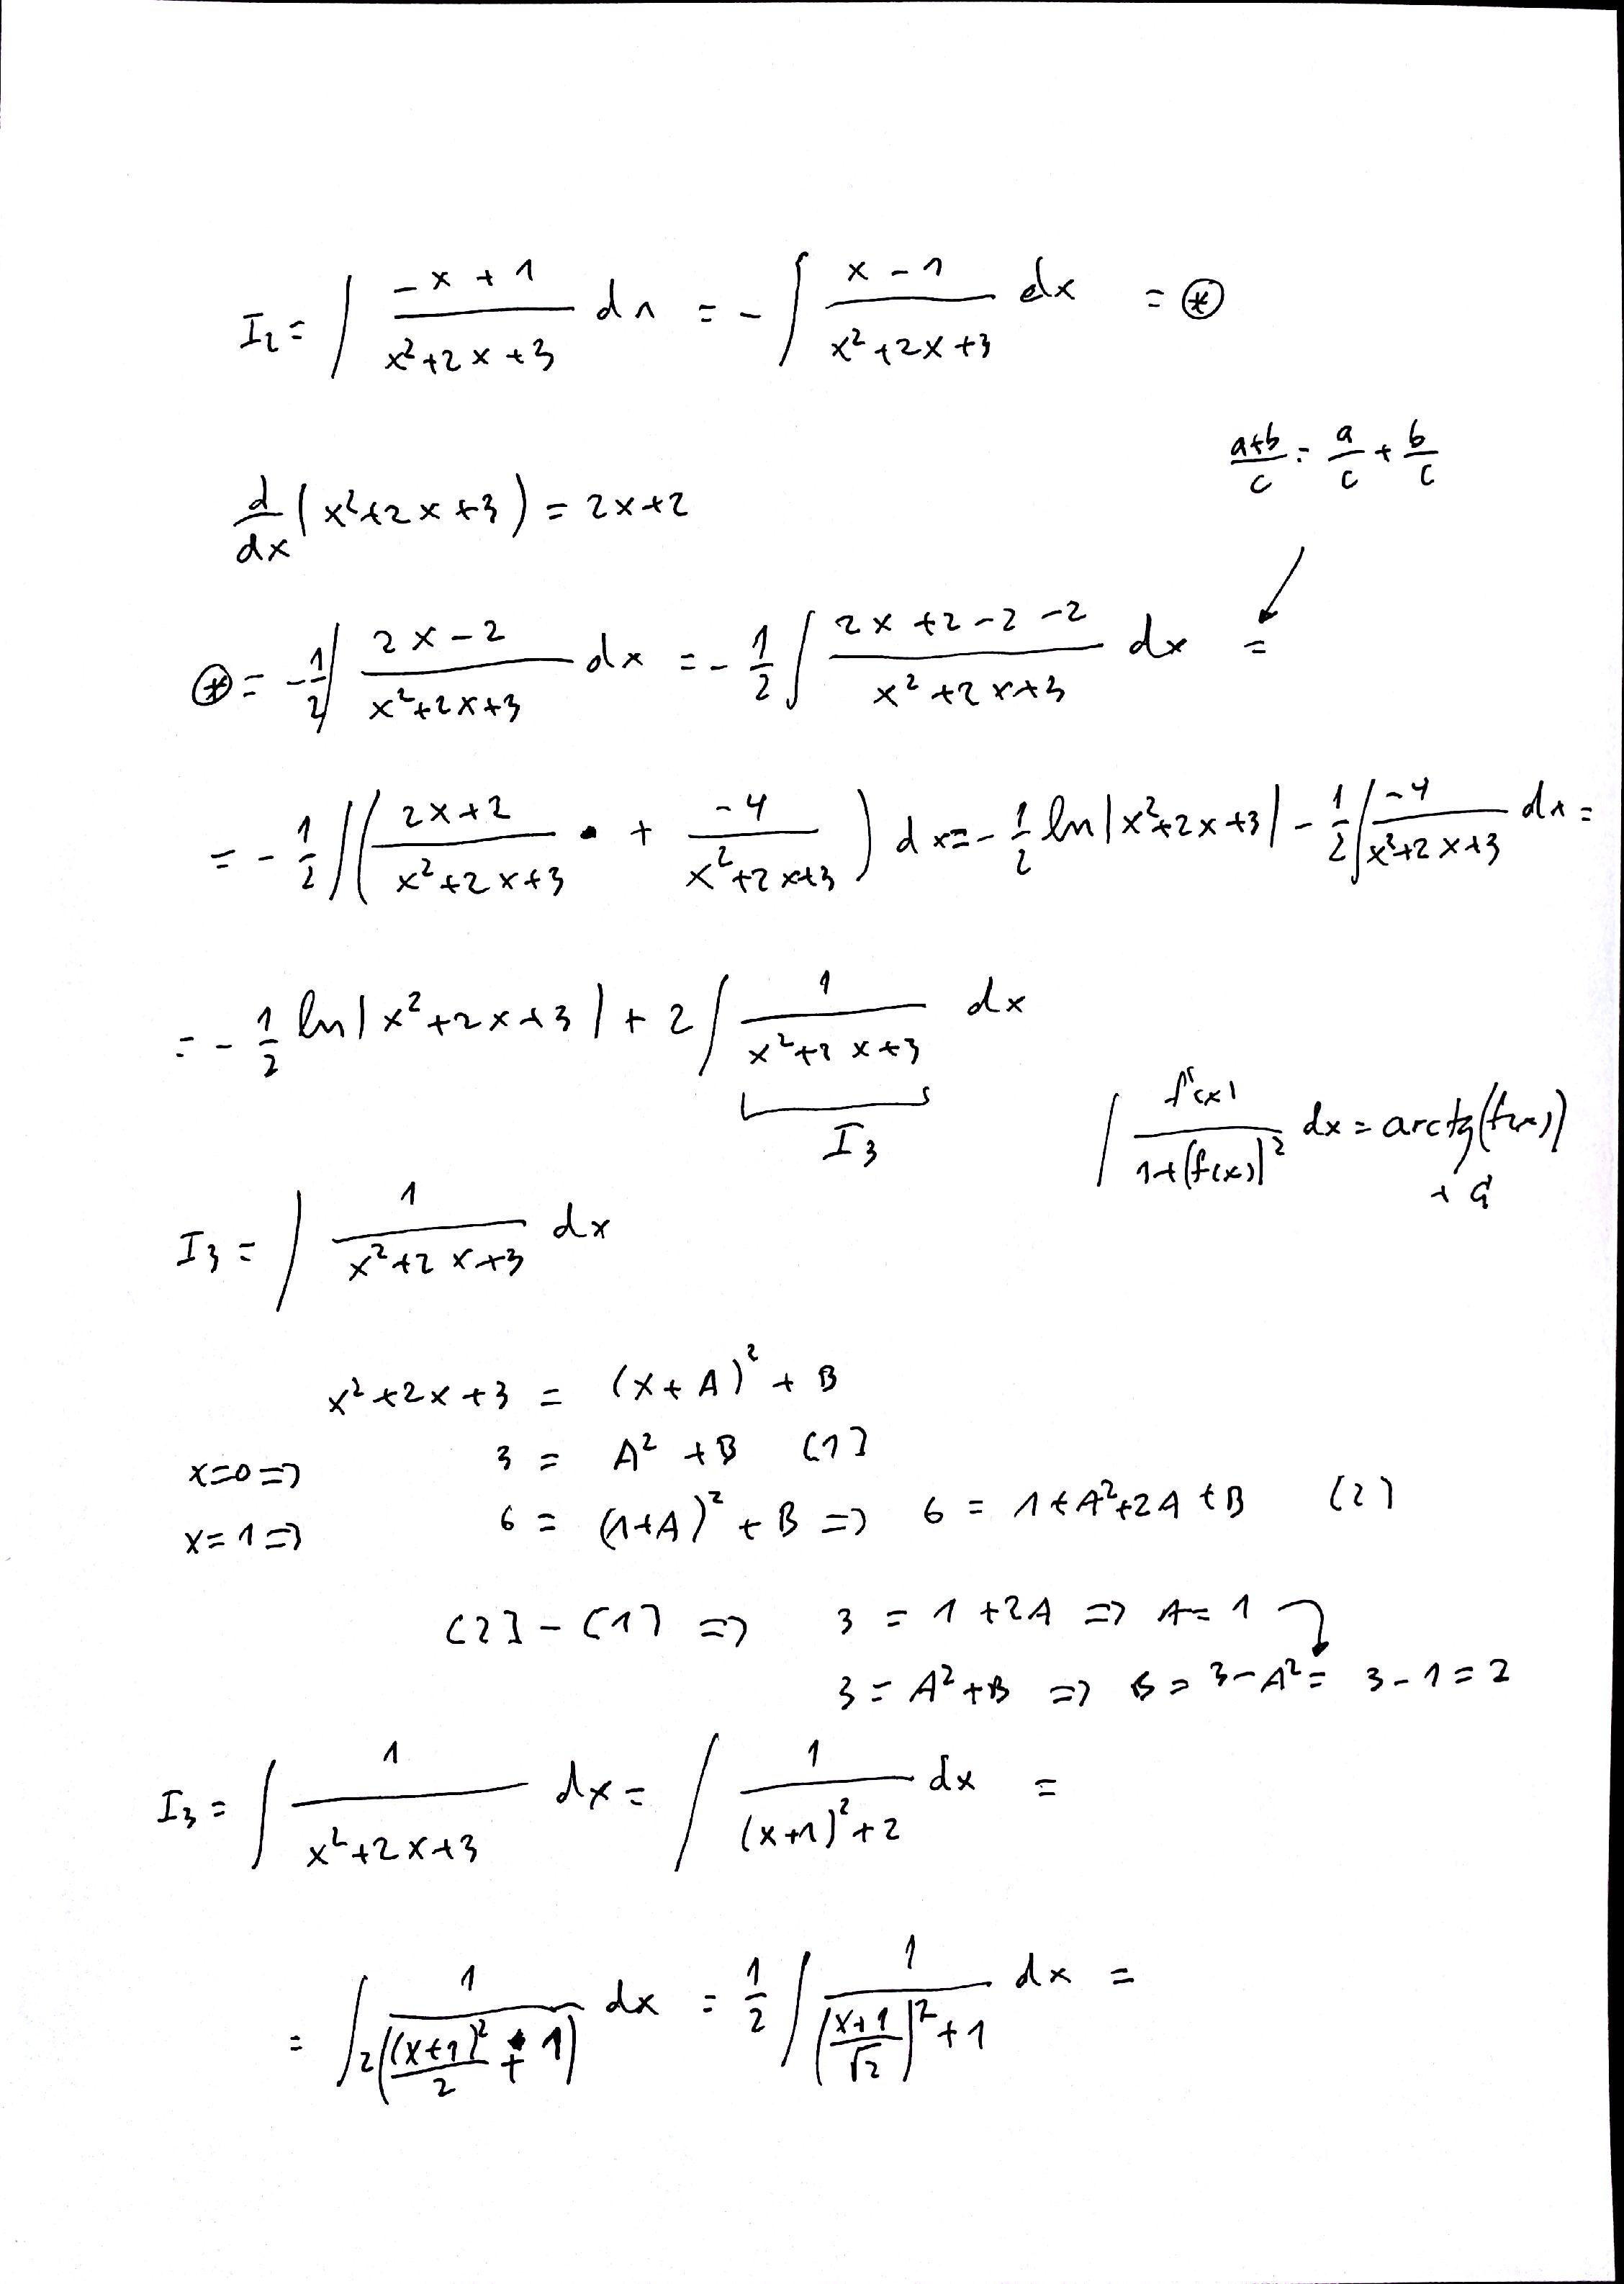 I₂ = ∫ (-x+1)/(x²+2x+3) dx = -∫ (x-1)/(x²+2x+3) dx = ⊛
(a+b)/c = a/c + b/c
d/dx (x²+2x+3) = 2x+2
⊛ = -1/2 ∫ (2x-2)/(x²+2x+3) dx = -1/2 ∫ (2x+2-2-2)/(x²+2x+3) dx =
= -1/2 ∫ ((2x+2)/(x²+2x+3) + (-4)/(x²+2x+3)) dx = -1/2 ln|x²+2x+3| - 1/2 ∫ (-4)/(x²+2x+3) dx =
= -1/2 ln|x²+2x+3| + 2 ∫ 1/(x²+2x+3) dx
I₃
∫ f'(x)/(1+(f(x))²) dx = arctg(f(x)) + C
I₃ = ∫ 1/(x²+2x+3) dx
x²+2x+3 = (x+A)² + B
x=0 ⇒ 3 = A² + B [1]
x=1 ⇒ 6 = (1+A)² + B ⇒ 6 = 1+A²+2A+B [2]
[2] - [1] ⇒ 3 = 1+2A ⇒ A = 1
3 = A²+B ⇒ B = 3-A² = 3-1 = 2
I₃ = ∫ 1/(x²+2x+3) dx = ∫ 1/((x+1)²+2) dx =
= ∫ 1/(2((x+1)²/2 + 1)) dx = 1/2 ∫ 1/(((x+1)/√2)²+1) dx =